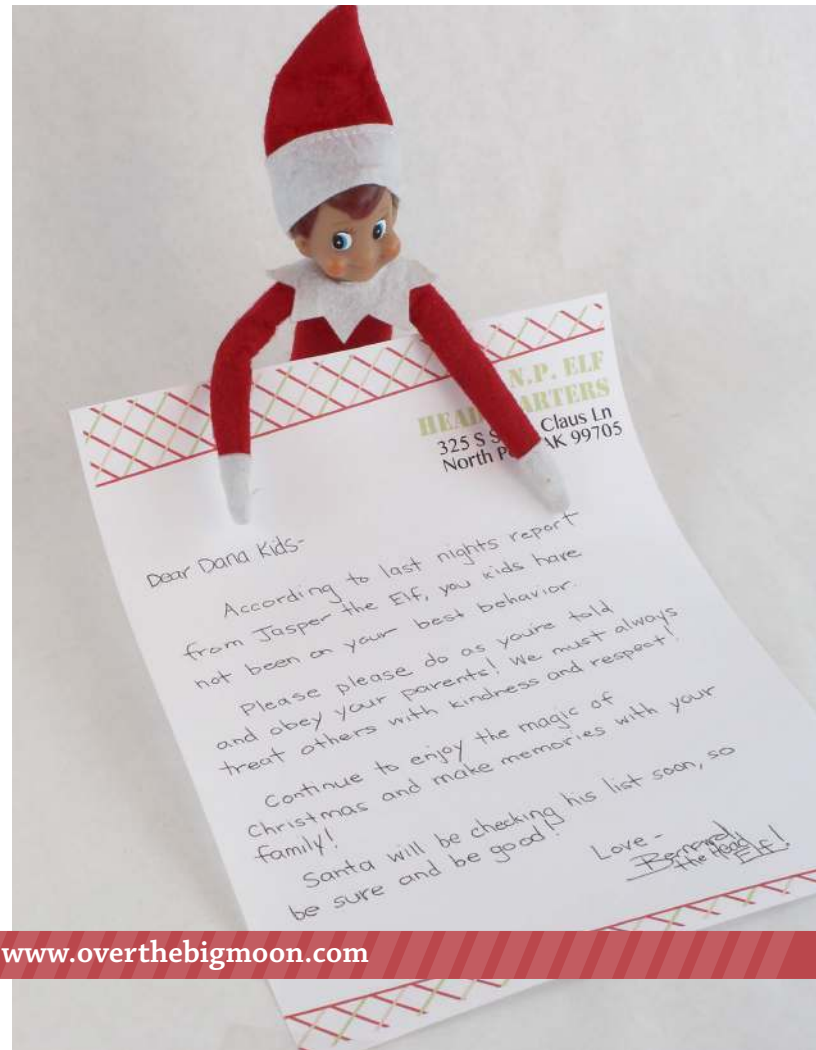 N.P. ELF
HEAD ARTERS
325 S Claus Ln
North P AK 99705
Dear Dana Kids-
According to last nights report
from Jasper the Elf, you kids have
not been on your best behavior.
Please please do as you're told
and obey your parents! We must always
treat others with kindness and respect!
Continue to enjoy the magic of
Christmas and make memories with your
family!
Santa will be checking his list soon, so
be sure and be good!
Love -
Bernard
the Head
Elf!
www.overthebigmoon.com